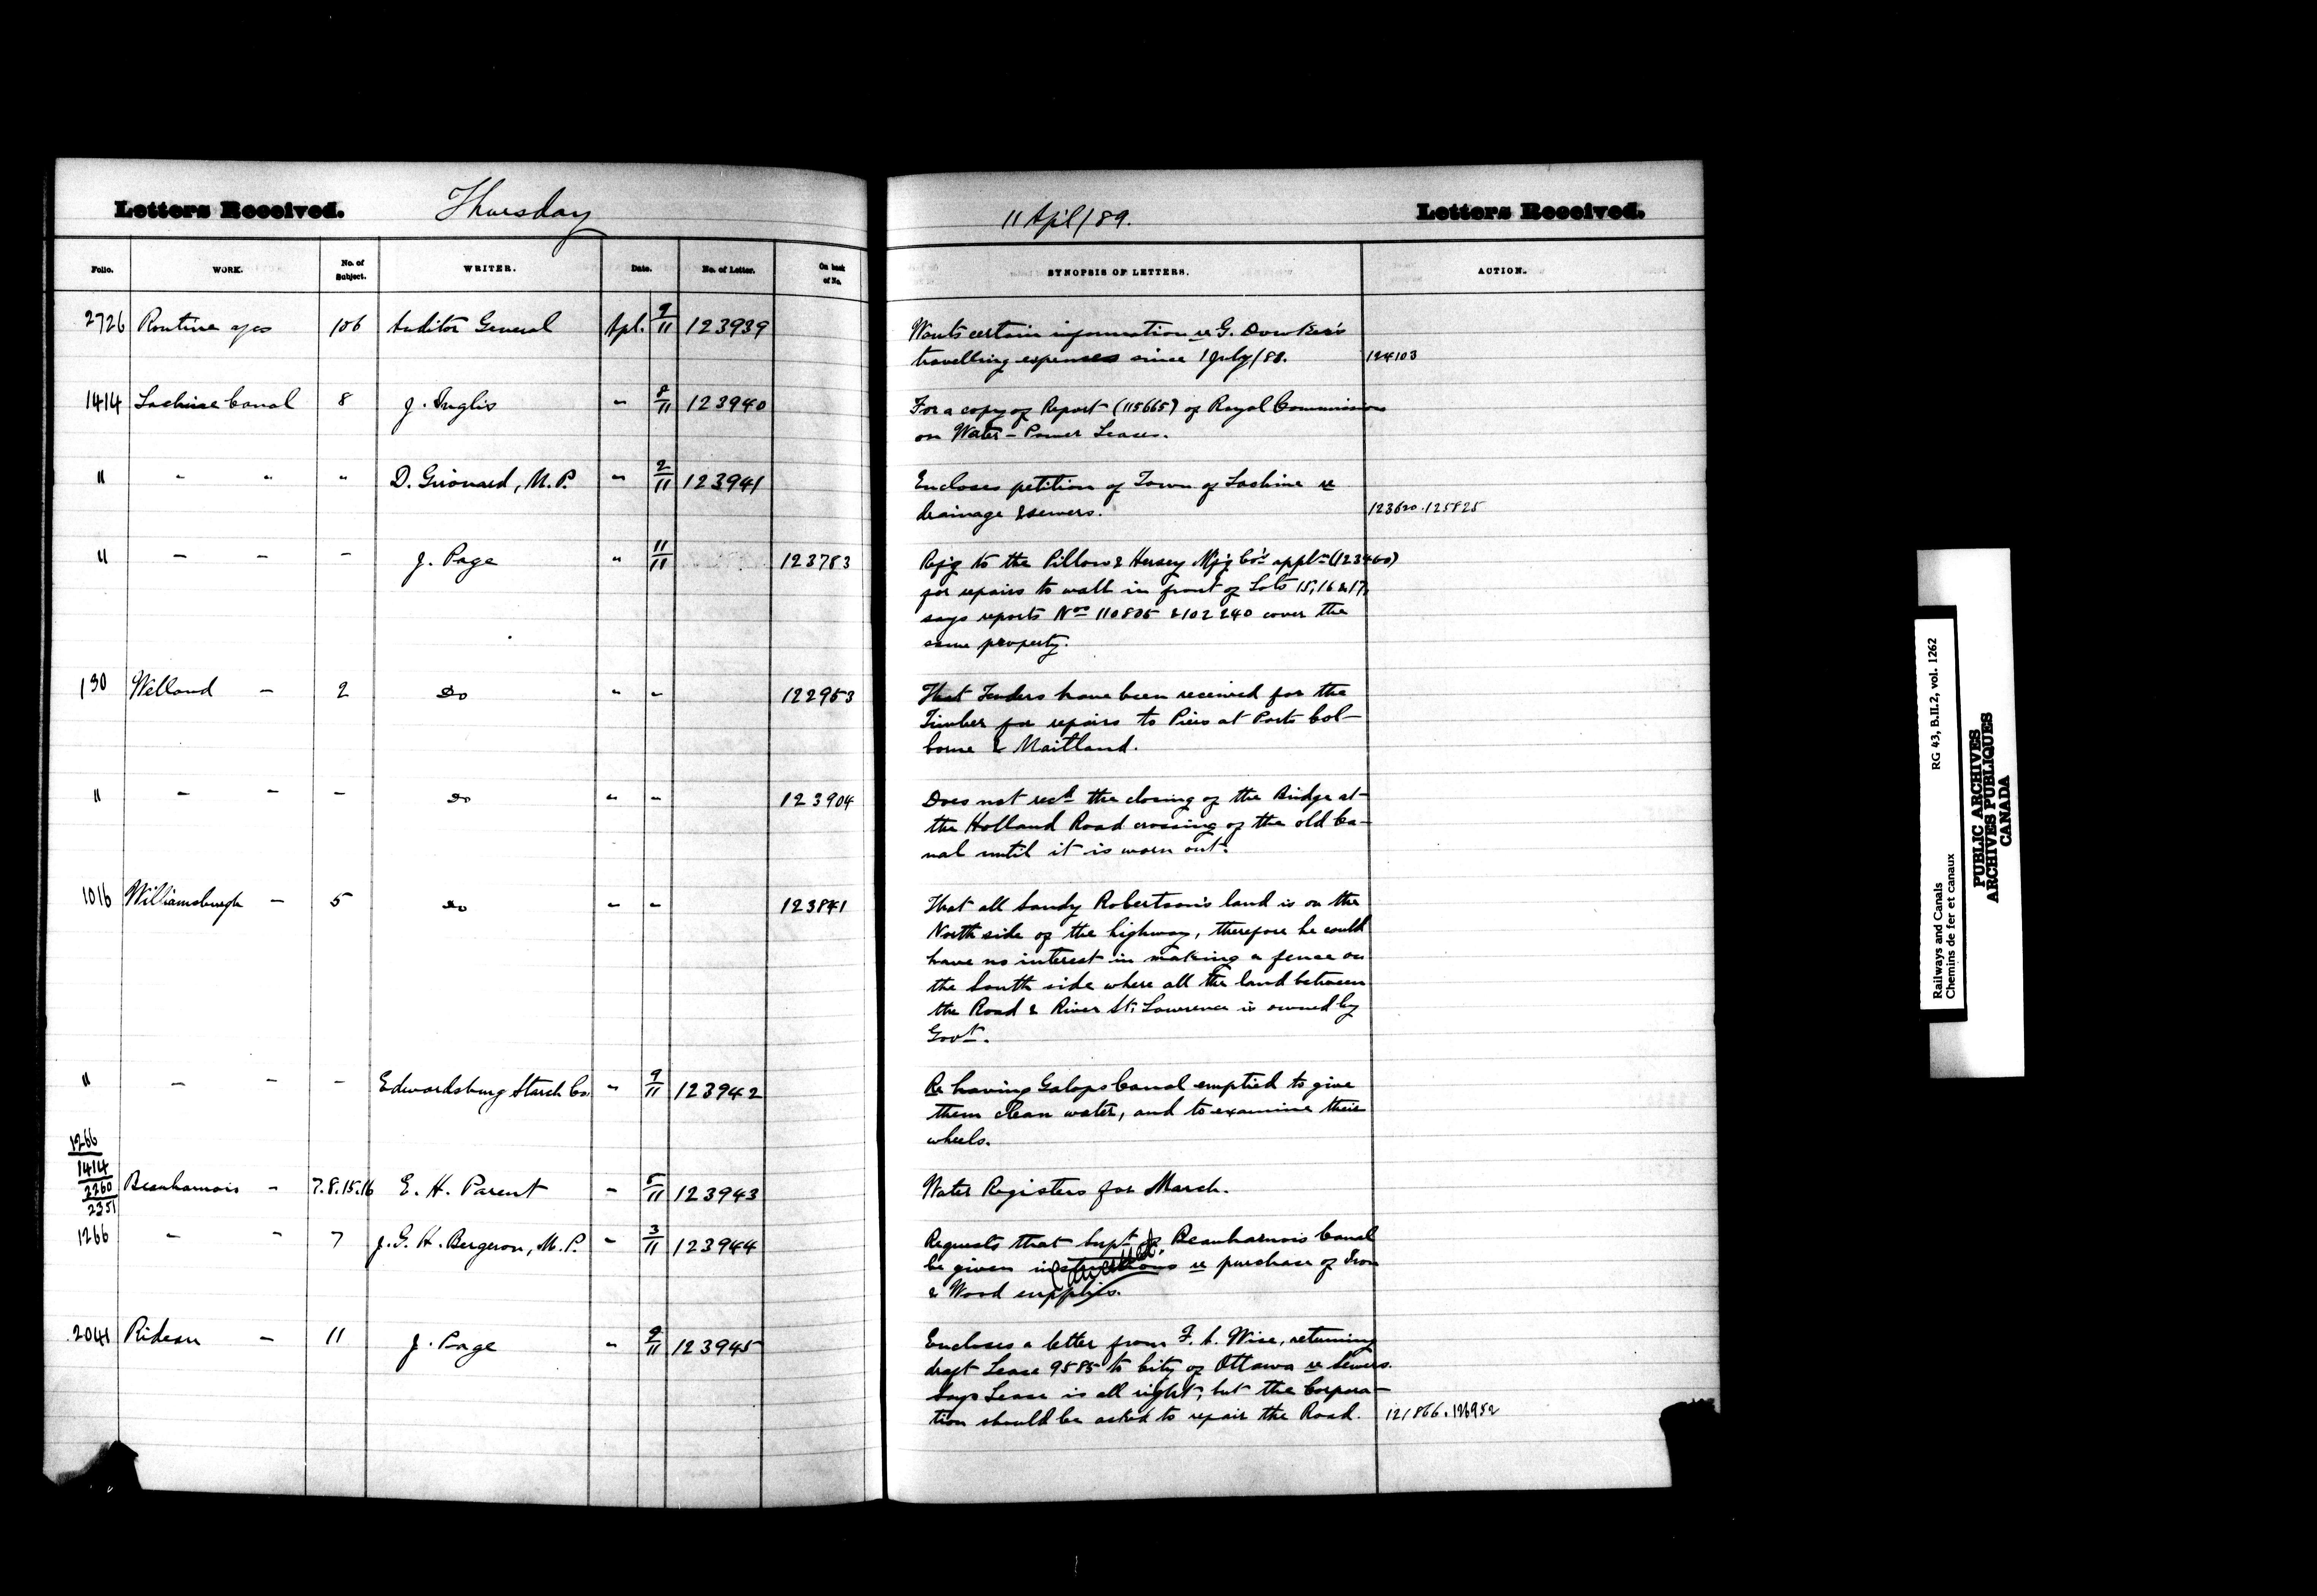 Letters Received.
Thursday
Folio. WORK. No. of Subject. WRITER. Date. No. of Letter. On back of No.
2726 Routine 106 Auditor General Apl. 9/11 123939
1414 Lachine Canal 8 J. Inglis " 8/11 123940
" " " " D. Girouard, M.P. " 2/11 123941
" — — — J. Page " 11/11 123783
130 Welland — 2 Do " " 122953
" — — — Do " " 123904
1016 Williamsburgh — 5 Do " " 123841
" — — — Edwardsburg Starch Co. " 9/11 123942
1266
1414
2260 Beauharnois — 7.8.15.16 E. H. Parent — 5/11 123943
2351
1266 — — 7 J. G. H. Bergeron, M.P. " 3/11 123944
2041 Rideau — 11 J. Page " 9/11 123945
11 Apl/89.
Letters Received.
SYNOPSIS OF LETTERS. ACTION.
Wants certain information re G. Dowker's
travelling expenses since 1 July/88. 124103
For a copy of Report (115665) of Royal Commission
on Water-Power Leases.
Encloses petition of Town of Lachine re
drainage & sewers. 123620.125825
Refg to the Pillow & Hersey Mfg Co's appln (123460)
for repairs to wall in front of Lots 15, 16 & 17,
says reports Nos 110805 & 102240 cover the
same property.
That Tenders have been received for the
Timber for repairs to Piers at Ports Col-
borne & Maitland.
Does not recd the closing of the Bridge at
the Holland Road crossing of the old Ca-
nal until it is worn out.
That all Sandy Robertson's land is on the
North side of the highway, therefore he could
have no interest in making a fence on
the South side where all the land between
the Road & River St. Lawrence is owned by
Govt.
Re having Galops Canal emptied to give
them clean water, and to examine their
wheels.
Water Registers for March.
Requests that Supt of Beauharnois Canal
be given instructions re purchase of Iron
& Wood supplies.
(Cancelled.
Encloses a letter from F. A. Wise, returning
draft Lease 9585 to City of Ottawa re Sewers.
Says Lease is all right, but the Corpora-
tion should be asked to repair the Road. 121866.126952
Railways and Canals RG 43, B.II.2, vol. 1262
Chemins de fer et canaux
PUBLIC ARCHIVES
ARCHIVES PUBLIQUES
CANADA